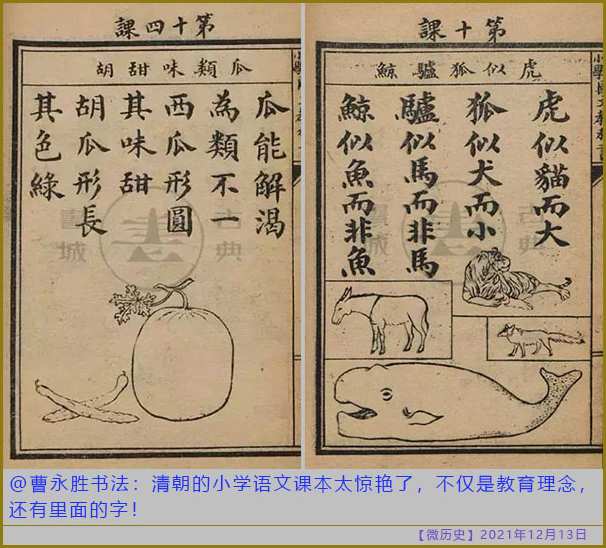 第十課
虎似狐驢鯨
虎似貓而大
狐似犬而小
驢似馬而非馬
鯨似魚而非魚
第十四課
瓜類味甜胡
瓜能解渴
為類不一
西瓜形圓
其味甜
胡瓜形長
其色綠
古典
書城
古典
書城
@曹永胜书法：清朝的小学语文课本太惊艳了，不仅是教育理念，
还有里面的字！
【微历史】2021年12月13日